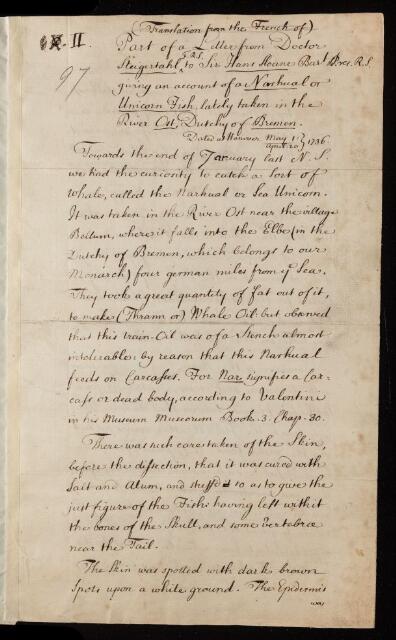 (Translation from the French of)
II.
Part of a Letter from Doctor
97
Steigertahl, F.R.S. to Sir Hans Sloane Bart. Pres. R.S.
giving an account of a Narhual or
Unicorn Fish, lately taken in the
River Ost, Dutchy of Bremen.
Dated at Hanover May 1. April 20 } 1736.
Towards the end of January last N. S.
we had the curiosity to catch a sort of
Whale, called the Narhual or Sea Unicorn.
It was taken in the River Ost near the village
Bellum, where it falls into the Elbe (in the
Dutchy of Bremen, which belongs to our
Monarch) four german miles from ye Sea.
They took a great quantity of fat out of it,
to make (Thrann or) Whale Oil: but observed
that this train-Oil was of a Stench almost
intolerable: by reason that this Narhual
feeds on Carcasses. For Nar, signifies a Car-
cass or dead body, according to Valentini
in his Museum Museorum Book. 3. Chap. 30.
There was such care taken of the Skin,
before the dissection, that it was cured with
Salt and Alum, and stuff'd so as to give the
just figure of the Fish: having left with it
the bones of the Skull, and some vertebræ
near the Tail.
The Skin was spotted with dark brown
Spots upon a white ground. The Epidermis
was